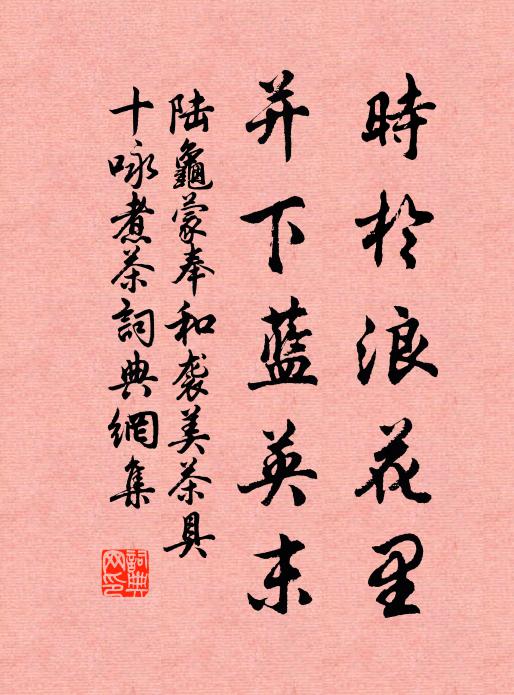 時於浪花里
并下藍英末
陆龜蒙奉和袭美茶具
十咏煮茶詞典網集
詞典网印